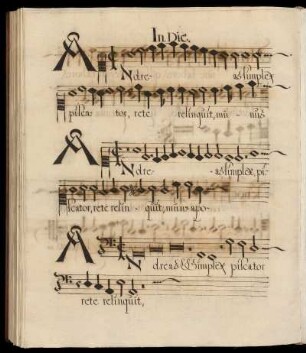 In Die.
ANdre- as simplex
pisca- tor, rete relinquit, mu- nus
ANdre- as simplex, pi-
scator, rete relin- quit, munus apo-
ANdreas simplex piscator
rete relinquit,